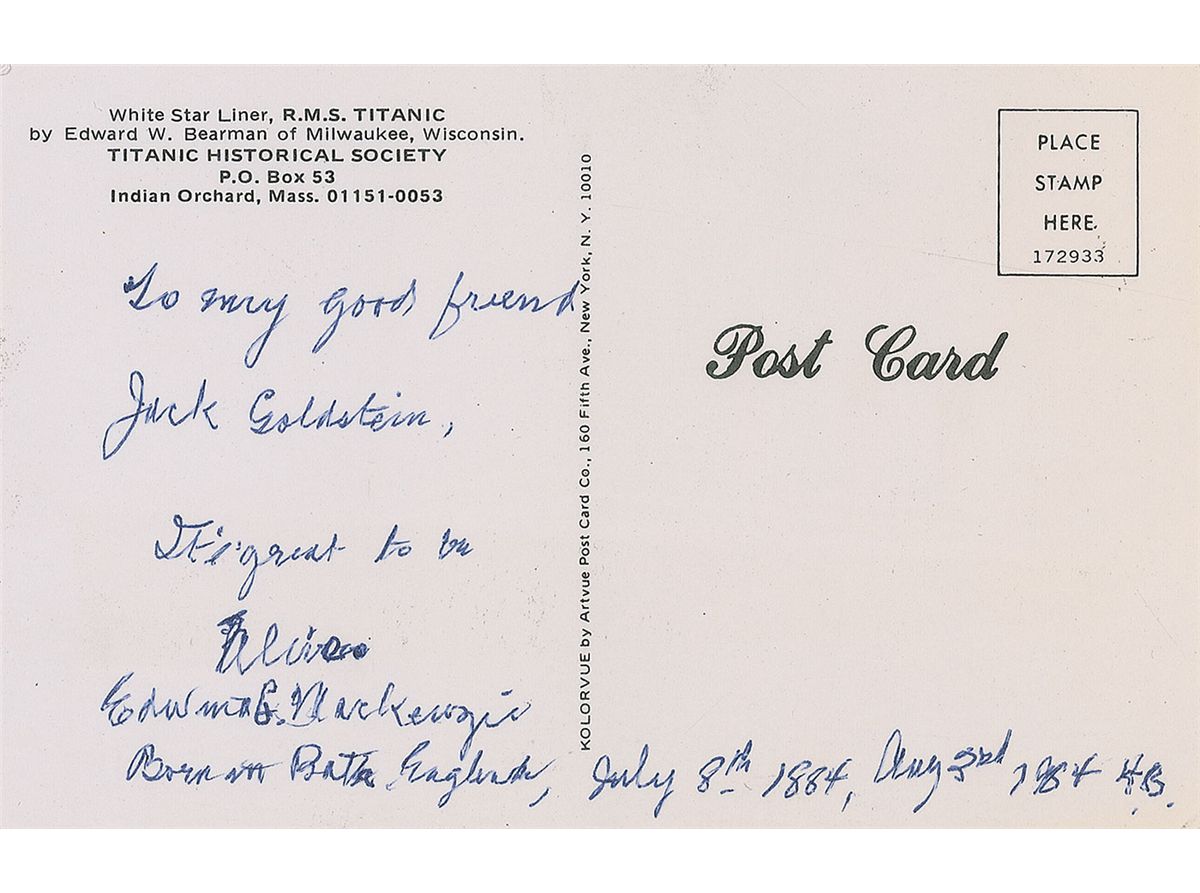 White Star Liner, R.M.S. TITANIC
by Edward W. Bearman of Milwaukee, Wisconsin.
TITANIC HISTORICAL SOCIETY
P.O. Box 53
Indian Orchard, Mass. 01151-0053
To my good friend
Jack Goldstein,
It's great to be
Alive
Edwina C. MacKenzie
Born at Bath England, July 8th 1884, Aug 3rd 1984
KOLORVUE by Artvue Post Card Co., 160 Fifth Ave., New York, N. Y. 10010
PLACE
STAMP
HERE
172933
Post Card